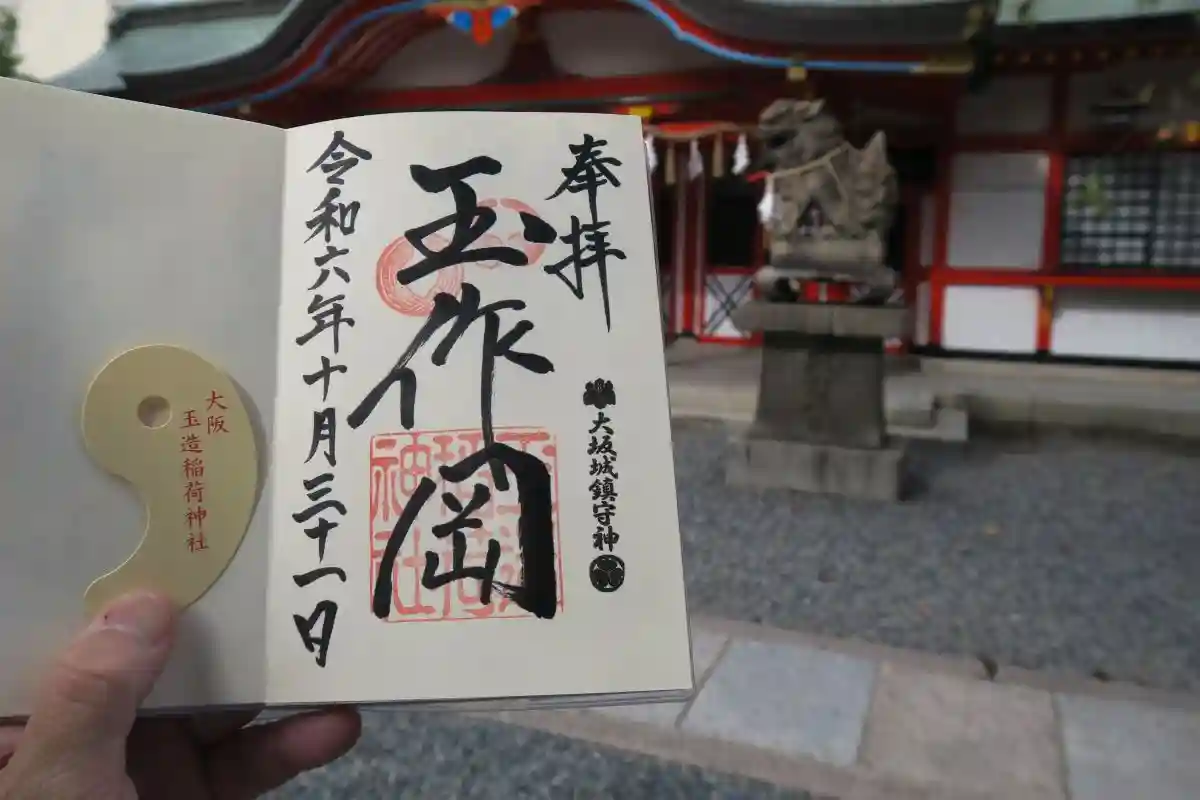 奉拝
大坂城鎮守神
玉作岡
令和六年十月三十一日
大阪
玉造稲荷神社